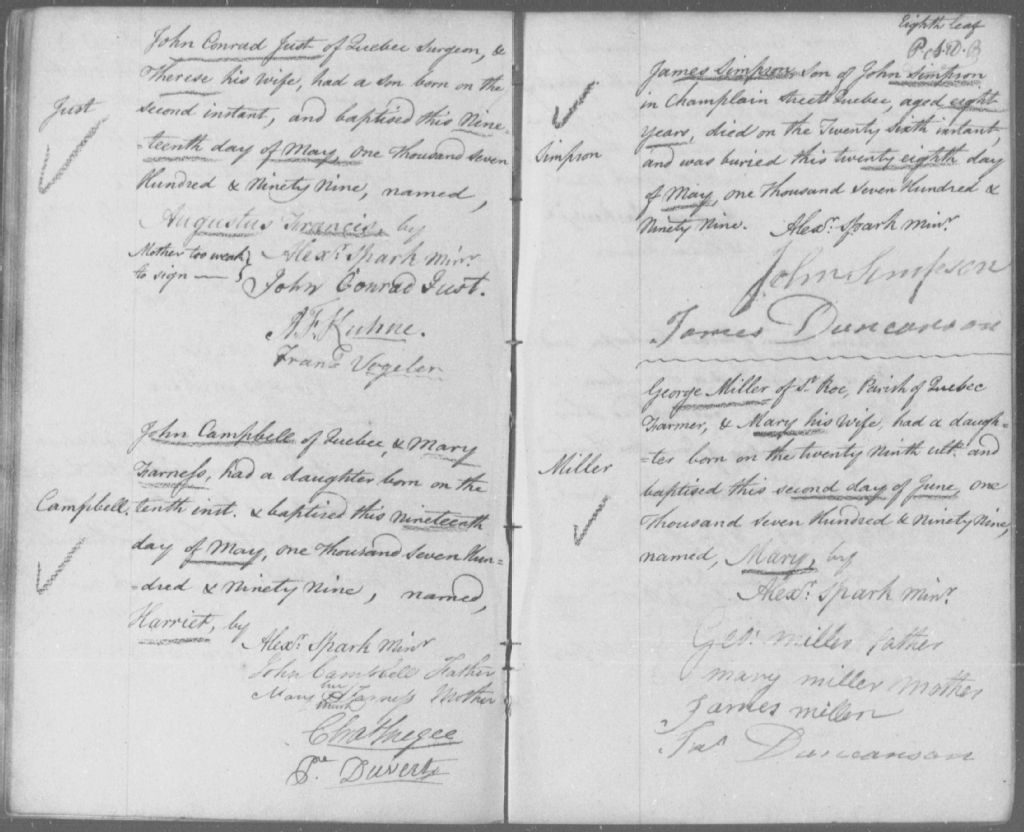 John Conrad Just of Quebec Surgeon, &
Therese his wife, had a son born on the
Just
second instant, and baptised this Nine-
-teenth day of May, one thousand seven
Hundred & Ninety Nine, named,
Augustus Francis, by
Mother too weak
to sign —
Alexr. Spark minr.
John Conrad Just.
A F Kuhne.
Frans. Vogeler
John Campbell of Quebec, & Mary
Farness, had a daughter born on the
Campbell.
tenth inst. & baptised this nineteenth
day of May, one thousand seven Hun-
-dred & Ninety Nine, named,
Harriet, by
Alexr. Spark minr
John Campbell Father
Mary her mark Farness Mother
Prre Duvert
Eighth leaf
James Simpson son of John Simpson
in Champlain Street Quebec, aged eight
years, died on the Twenty sixth instant,
Simpson
and was buried this twenty eighth day
of May, one thousand seven Hundred &
Ninety Nine. Alexr. Spark minr.
John Simpson
James Duncanson
George Miller of St. Roc, Parish of Quebec
Farmer, & Mary his Wife, had a daugh-
-ter born on the twenty Ninth ult. and
Miller
baptised this second day of June, one
thousand seven Hundred & Ninety Nine,
named, Mary, by
Alexr. Spark minr.
Geor. miller father
mary miller mother
James miller
Jas Duncanson